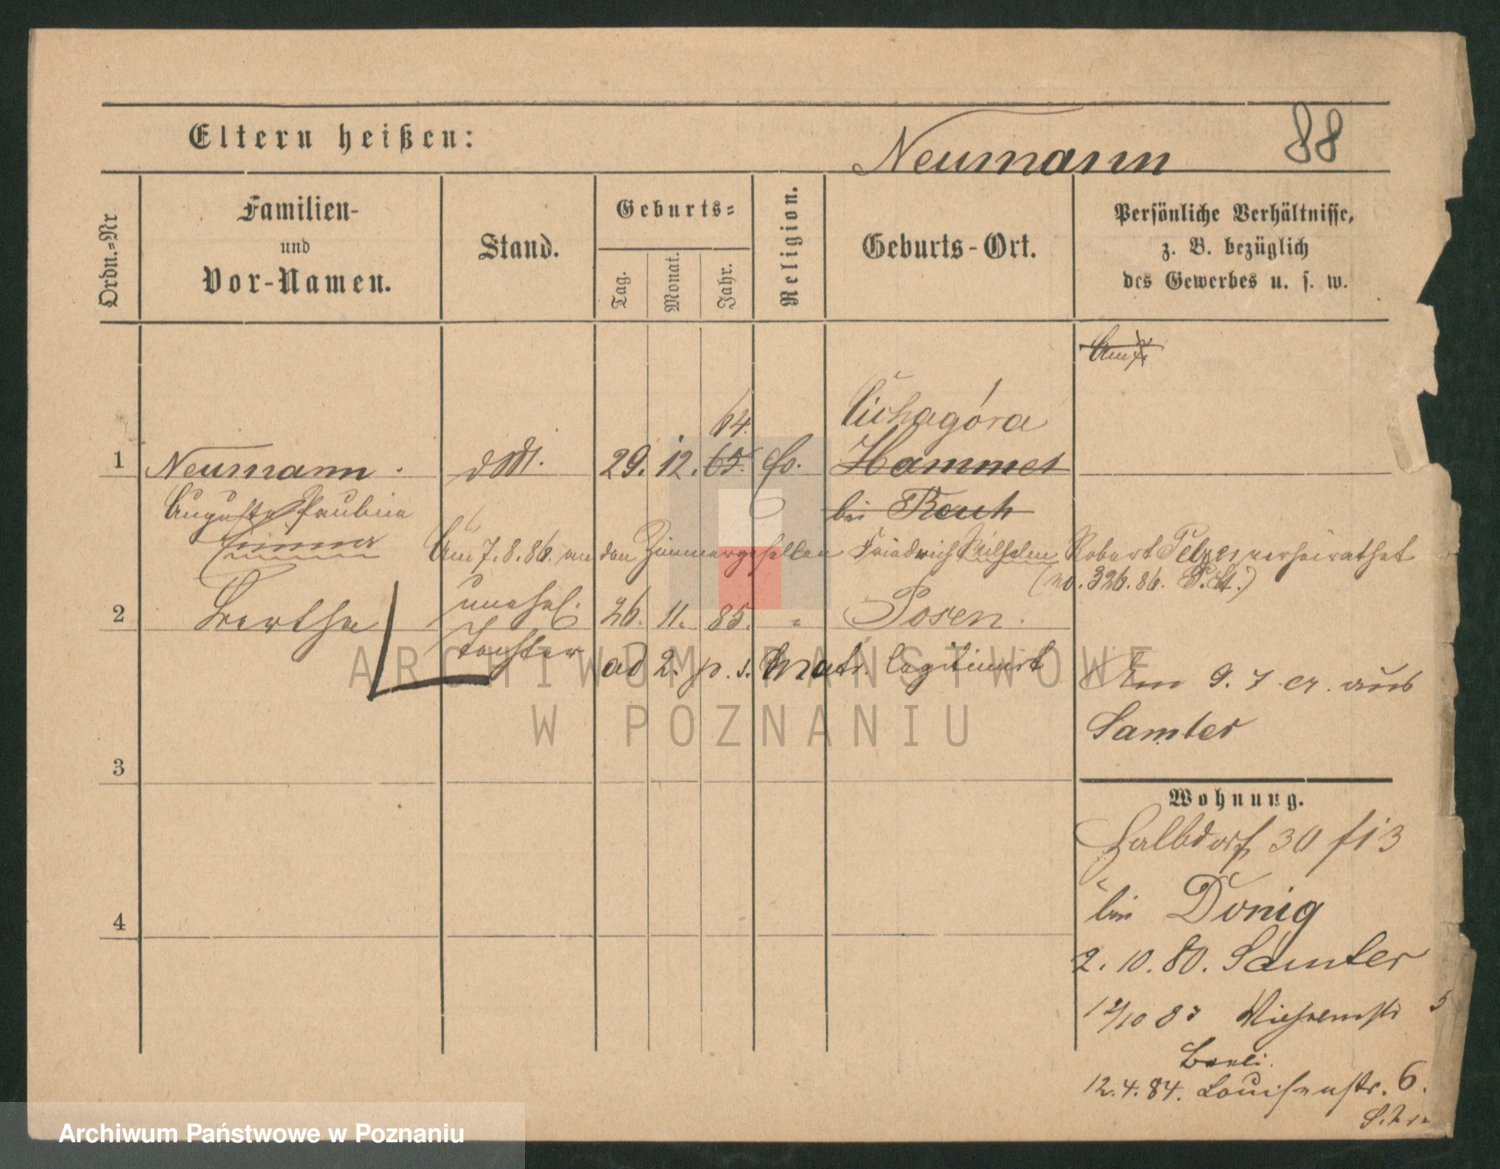 Eltern heißen:
Neumann
88
Ordn.=Nr
Familien-
und
Vor-Namen.
Stand.
Geburts=
Tag.
Monat.
Jahr.
Religion.
Geburts-Ort.
Persönliche Verhältnisse,
z. B. bezüglich
des Gewerbes u. s. w.
Am 7
64.
Cichagóra
1
Neumann.
29. 12. 65.
Hammer
Auguste Pauline
bei
Emma
Am 7.8.86. an den Zimmergesellen Friedrich Wilhelm Robert Pelzer verheirathet
(No. 326.86. P. St.)
2
Bertha
unehel.
Tochter
26. 11. 85.
"
Posen.
ad 2. p. s. matr. legitimirt
Am 9. 7 cr. aus
Samter
3
Wohnung.
Halbdorf 30
bei Donig
4
2. 10. 80. Samter
12/10 83
5
12.4.84. Louisenstr. 6.
ARCHIWUM PAŃSTWOWE
W POZNANIU
Archiwum Państwowe w Poznaniu